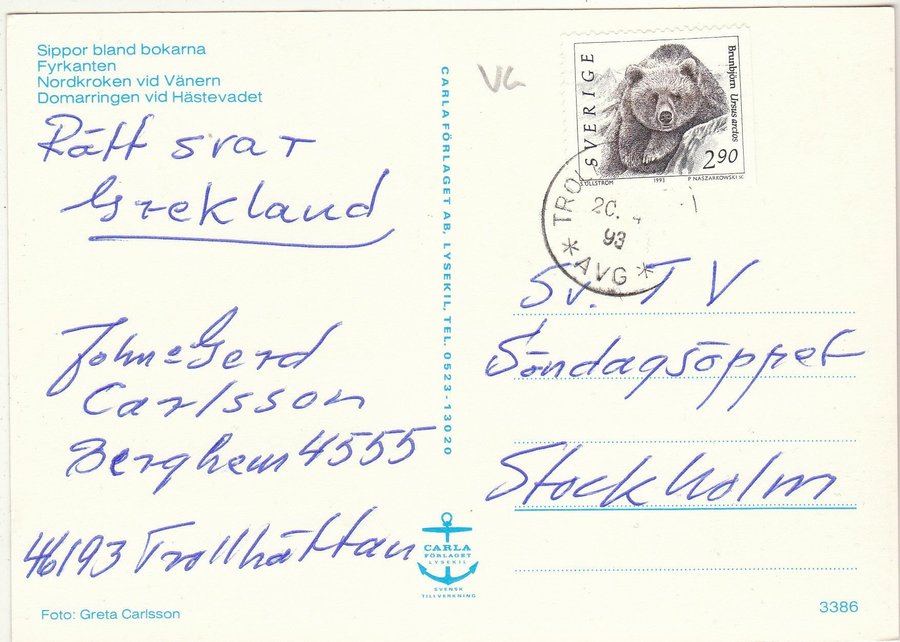 Sippor bland bokarna
Fyrkanten
Nordkroken vid Vänern
Domarringen vid Hästevadet
Rätt svar
Grekland
John o Gerd
Carlsson
Berghem 4555
46193 Trollhättan
Foto: Greta Carlsson
CARLAFÖRLAGET AB, LYSEKIL, TEL. 0523-13020
CARLA
FÖRLAGET
LYSEKIL
SVENSK
TILLVERKNING
VG
SVERIGE
Brunbjörn Ursus arctos
2.90
S ULLSTRÖM 1993 P NASZARKOWSKI SC
TROL
20.
93
* AVG *
Sv. TV
Söndagsöppet
Stockholm
3386